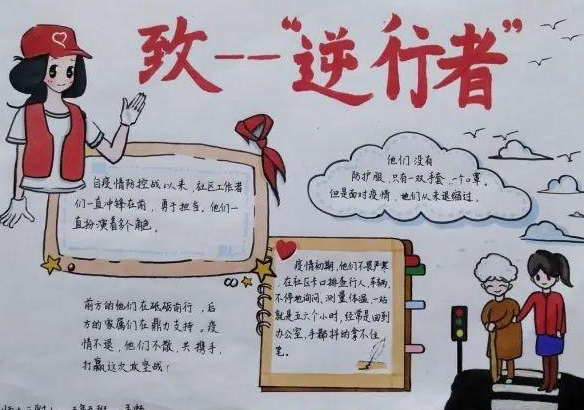 致——“逆行者”
自疫情防控战以来,社区工作者
们一直冲锋在前,勇于担当。他们一
直扮演着多个角色。
他们没有
防护服,只有一双手套,一个口罩。
但是面对疫情,他们从未退缩过。
疫情初期,他们不畏严寒
,在社区卡口排查行人、车辆,
不停地询问、测量体温,一站
就是五六个小时,经常是回到
办公室,手都抖的拿不住
笔。
前方的他们在砥砺前行,后
方的家属们在鼎力支持。疫
情不退,他们不散,共携手,
打赢这次攻坚战!